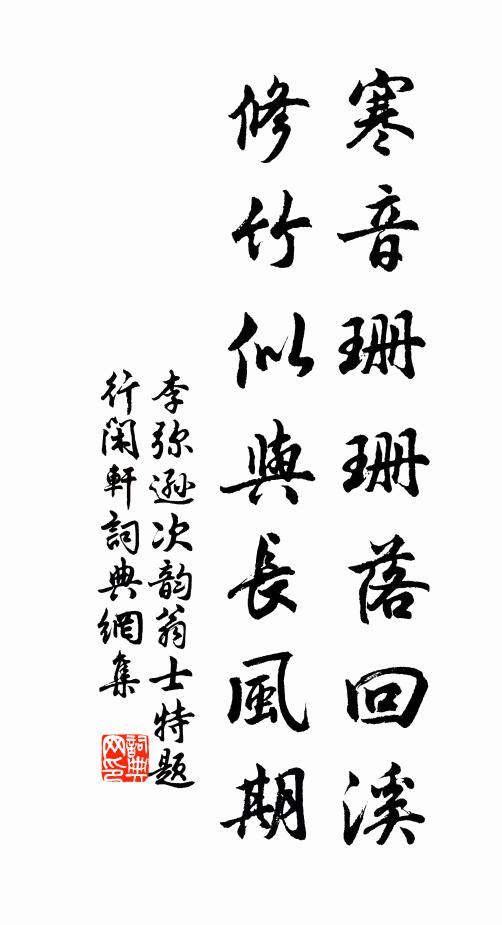 寒音珊珊落回溪
修竹似與長風期
李弥遜次韵翁士特題
行閑軒詞典網集
詞典
网印